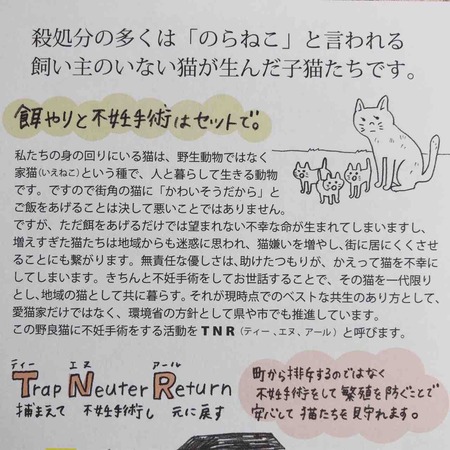 殺処分の多くは「のらねこ」と言われる
飼い主のいない猫が生んだ子猫たちです。
餌やりと不妊手術はセットで。
私たちの身の回りにいる猫は、野生動物ではなく
家猫(いえねこ)という種で、人と暮らして生きる動物
です。ですので街角の猫に「かわいそうだから」と
ご飯をあげることは決して悪いことではありません。
ですが、ただ餌をあげるだけでは望まれない不幸な命が生まれてしまいますし、
増えすぎた猫たちは地域からも迷惑に思われ、猫嫌いを増やし、街に居にくくさせ
ることにも繋がります。無責任な優しさは、助けたつもりが、かえって猫を不幸に
してしまいます。きちんと不妊手術をしてお世話することで、その猫を一代限り
とし、地域の猫として共に暮らす。それが現時点でのベストな共生のあり方として、
愛猫家だけではなく、環境省の方針として県や市でも推進しています。
この野良猫に不妊手術をする活動をTNR(ティー、エヌ、アール)と呼びます。
ティー エヌ アール
Trap Neuter Return
捕まえて 不妊手術し 元に戻す
町から排除するのではなく
不妊手術をして繁殖を防ぐことで
安心して猫たちを見守れます。